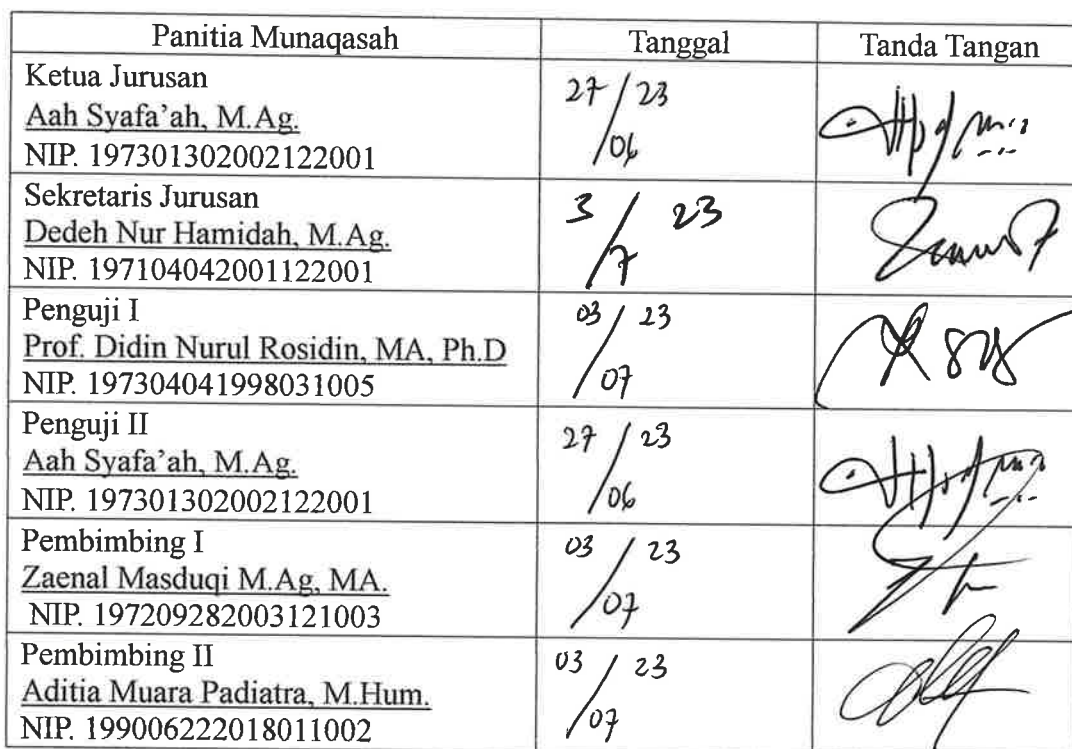 Panitia Munaqasah Tanggal Tanda Tangan
Ketua Jurusan
Aah Syafa'ah, M.Ag.
NIP. 197301302002122001
27/06 23
Sekretaris Jurusan
Dedeh Nur Hamidah, M.Ag.
NIP. 197104042001122001
3/7 23
Penguji I
Prof. Didin Nurul Rosidin, MA, Ph.D
NIP. 197304041998031005
03/07 23
Penguji II
Aah Syafa'ah, M.Ag.
NIP. 197301302002122001
27/06 23
Pembimbing I
Zaenal Masduqi M.Ag, MA.
NIP. 197209282003121003
03/07 23
Pembimbing II
Aditia Muara Padiatra, M.Hum.
NIP. 199006222018011002
03/07 23